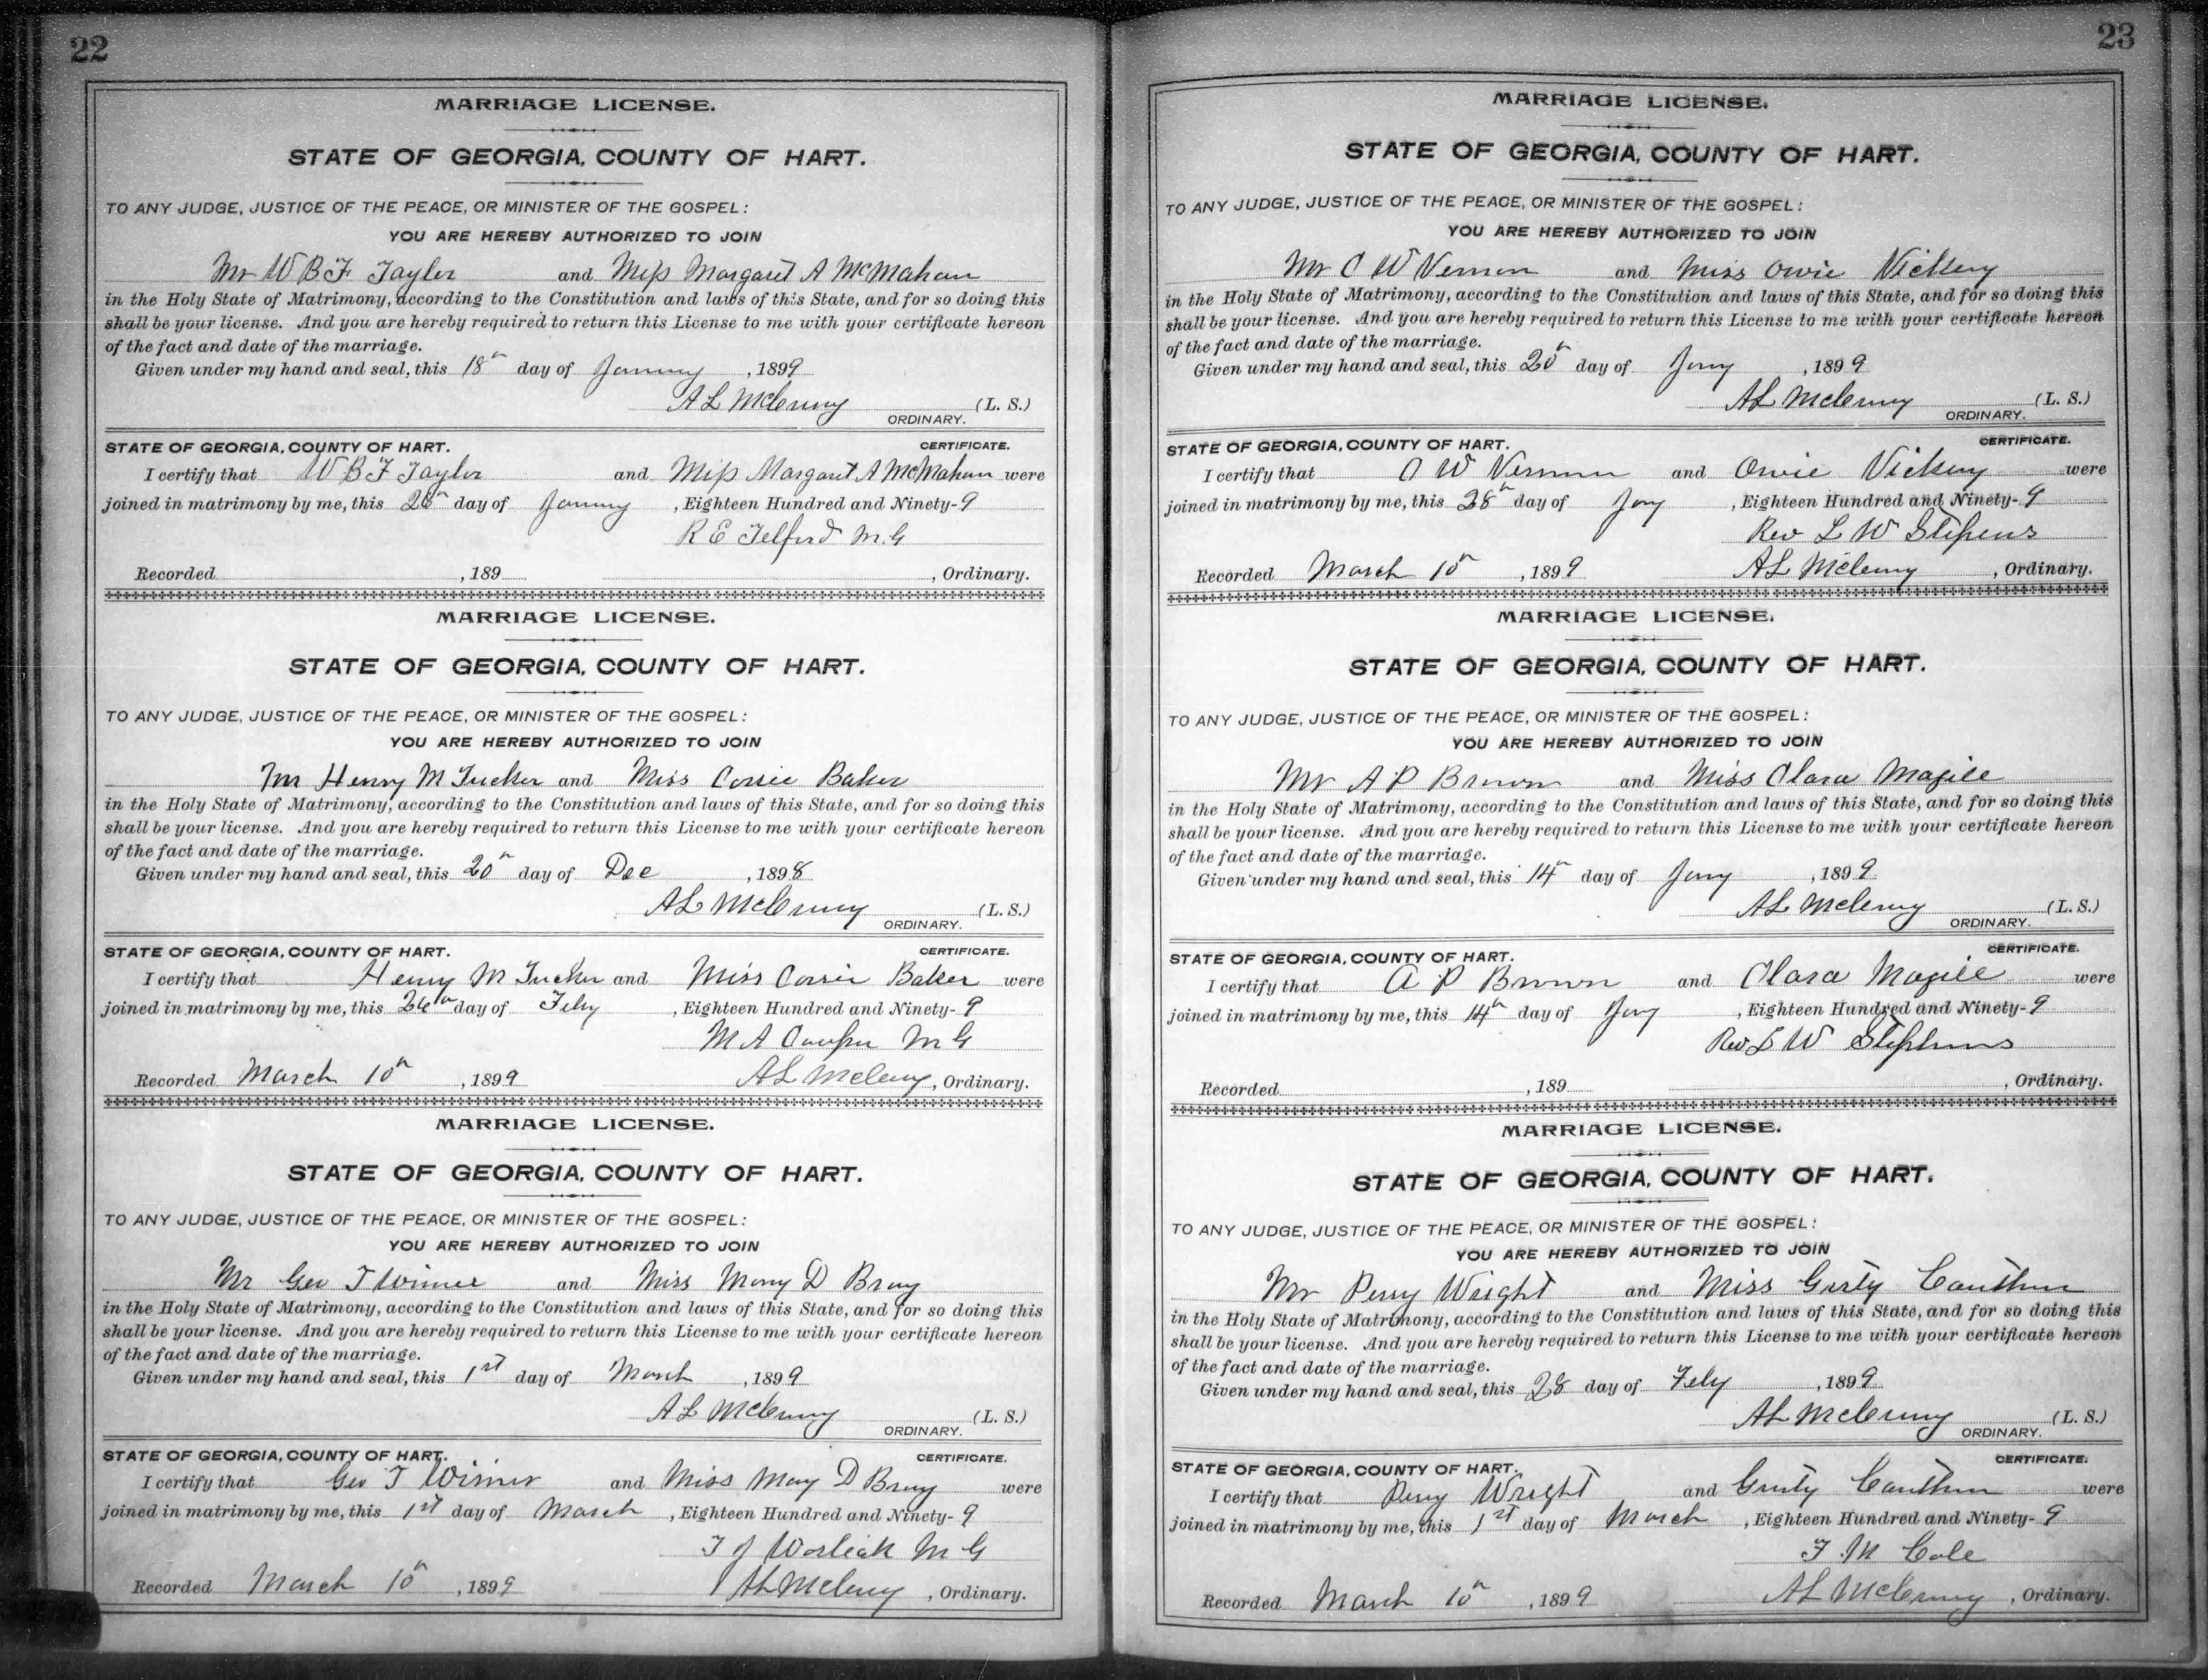 22
MARRIAGE LICENSE.
STATE OF GEORGIA, COUNTY OF HART.
TO ANY JUDGE, JUSTICE OF THE PEACE, OR MINISTER OF THE GOSPEL:
YOU ARE HEREBY AUTHORIZED TO JOIN
Mr W B F Taylor and Miss Margaret A McMahan
in the Holy State of Matrimony, according to the Constitution and laws of this State, and for so doing this
shall be your license. And you are hereby required to return this License to me with your certificate hereon
of the fact and date of the marriage.
Given under my hand and seal, this 18th day of January, 1899
A L McCurry (L. S.)
ORDINARY.
STATE OF GEORGIA, COUNTY OF HART. CERTIFICATE.
I certify that W B F Taylor and Miss Margaret A McMahan were
joined in matrimony by me, this day of January, Eighteen Hundred and Ninety-9
R E Telford M.G
Recorded , 189 , Ordinary.
MARRIAGE LICENSE.
STATE OF GEORGIA, COUNTY OF HART.
TO ANY JUDGE, JUSTICE OF THE PEACE, OR MINISTER OF THE GOSPEL:
YOU ARE HEREBY AUTHORIZED TO JOIN
Mr Henry M Tucker and Miss Corrie Baker
in the Holy State of Matrimony, according to the Constitution and laws of this State, and for so doing this
shall be your license. And you are hereby required to return this License to me with your certificate hereon
of the fact and date of the marriage.
Given under my hand and seal, this 20th day of Dec, 1898
A L McCurry (L. S.)
ORDINARY.
STATE OF GEORGIA, COUNTY OF HART. CERTIFICATE.
I certify that Henry M Tucker and Miss Corrie Baker were
joined in matrimony by me, this 26th day of Feby, Eighteen Hundred and Ninety-9
M A Cooper M G
Recorded March 10th, 1899 A L McCurry, Ordinary.
MARRIAGE LICENSE.
STATE OF GEORGIA, COUNTY OF HART.
TO ANY JUDGE, JUSTICE OF THE PEACE, OR MINISTER OF THE GOSPEL:
YOU ARE HEREBY AUTHORIZED TO JOIN
Mr Geo T and Miss Mary D Bray
in the Holy State of Matrimony, according to the Constitution and laws of this State, and for so doing this
shall be your license. And you are hereby required to return this License to me with your certificate hereon
of the fact and date of the marriage.
Given under my hand and seal, this 1st day of March, 1899
A L McCurry (L. S.)
ORDINARY.
STATE OF GEORGIA, COUNTY OF HART. CERTIFICATE.
I certify that Geo T and Miss Mary D Bray were
joined in matrimony by me, this 1st day of March, Eighteen Hundred and Ninety-9
T J Worlick M G
Recorded March 10th, 1899 A L McCurry, Ordinary.
23
MARRIAGE LICENSE.
STATE OF GEORGIA, COUNTY OF HART.
TO ANY JUDGE, JUSTICE OF THE PEACE, OR MINISTER OF THE GOSPEL:
YOU ARE HEREBY AUTHORIZED TO JOIN
Mr O W Vernon and Miss Ovie Vickery
in the Holy State of Matrimony, according to the Constitution and laws of this State, and for so doing this
shall be your license. And you are hereby required to return this License to me with your certificate hereon
of the fact and date of the marriage.
Given under my hand and seal, this day of Jany, 1899
A L McCurry (L. S.)
ORDINARY.
STATE OF GEORGIA, COUNTY OF HART. CERTIFICATE.
I certify that O W Vernon and Ovie Vickery were
joined in matrimony by me, this 28th day of Jany, Eighteen Hundred and Ninety-9
Rev L W Stephens
Recorded March 10th, 1899 A L McCurry, Ordinary.
MARRIAGE LICENSE.
STATE OF GEORGIA, COUNTY OF HART.
TO ANY JUDGE, JUSTICE OF THE PEACE, OR MINISTER OF THE GOSPEL:
YOU ARE HEREBY AUTHORIZED TO JOIN
Mr A P Brown and Miss Clara Magill
in the Holy State of Matrimony, according to the Constitution and laws of this State, and for so doing this
shall be your license. And you are hereby required to return this License to me with your certificate hereon
of the fact and date of the marriage.
Given under my hand and seal, this 14th day of Jany, 1899
A L McCurry (L. S.)
ORDINARY.
STATE OF GEORGIA, COUNTY OF HART. CERTIFICATE.
I certify that A P Brown and Clara Magill were
joined in matrimony by me, this 14th day of Jany, Eighteen Hundred and Ninety-9
Rev L W Stephens
Recorded , 189 , Ordinary.
MARRIAGE LICENSE.
STATE OF GEORGIA, COUNTY OF HART.
TO ANY JUDGE, JUSTICE OF THE PEACE, OR MINISTER OF THE GOSPEL:
YOU ARE HEREBY AUTHORIZED TO JOIN
Mr Perry Wright and Miss Girty Cauthen
in the Holy State of Matrimony, according to the Constitution and laws of this State, and for so doing this
shall be your license. And you are hereby required to return this License to me with your certificate hereon
of the fact and date of the marriage.
Given under my hand and seal, this 28 day of Feby, 1899
A L McCurry (L. S.)
ORDINARY.
STATE OF GEORGIA, COUNTY OF HART. CERTIFICATE.
I certify that Perry Wright and Girty Cauthen were
joined in matrimony by me, this 1st day of March, Eighteen Hundred and Ninety-9
F M Cole
Recorded March 10th, 1899 A L McCurry, Ordinary.